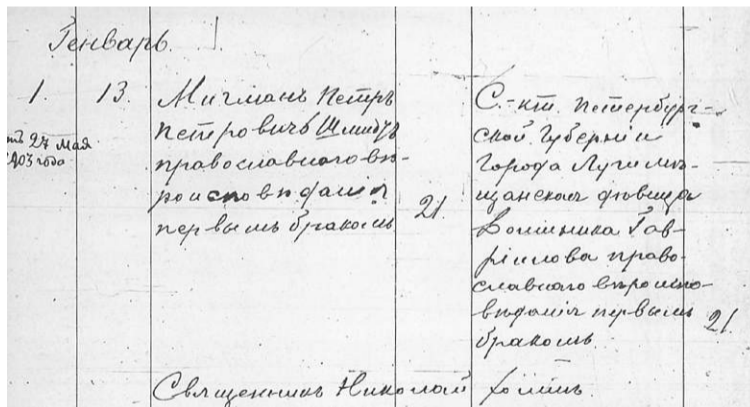 Генварь.
1. 13. Мичманъ Петръ
Петровичъ Шмидтъ
православнаго вѣ-
роисповѣданія
первымъ бракомъ
21.
27 мая
года
С.-кт. Петербург-
ской Губерніи
Города Луги мѣ-
щанская дѣвица
Домникія Гав-
рилова право-
славнаго вѣроиспо-
вѣданія первымъ
бракомъ.
21.
Священникъ Николай